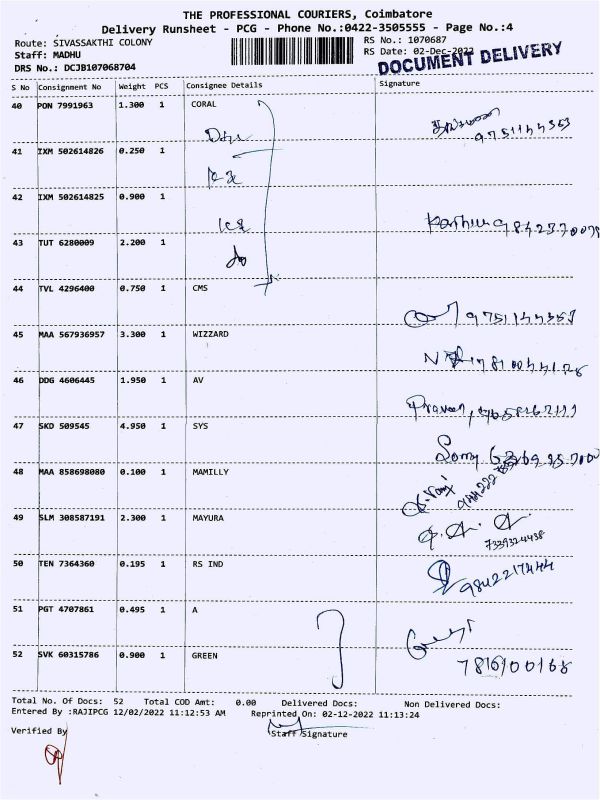 THE PROFESSIONAL COURIERS, Coimbatore
Delivery Runsheet - PCG - Phone No.:0422-3505555 - Page No.:4
Route: SIVASSAKTHI COLONY RS No.: 1070687
Staff: MADHU RS Date: 02-Dec-2022
DRS No.: DCJB107068704 DOCUMENT DELIVERY
S No Consignment No Weight PCS Consignee Details Signature
40 PON 7991963 1.300 1 CORAL
9751144353
41 IXM 502614826 0.250 1
42 IXM 502614825 0.900 1
43 TUT 6280009 2.200 1
44 TVL 4296400 0.750 1 CMS
9751144353
45 MAA 567936957 3.300 1 WIZZARD
46 DDG 4606445 1.950 1 AV
Praveen
47 SKD 509545 4.950 1 SYS
48 MAA 858698080 0.100 1 MAMILLY
49 SLM 308587191 2.300 1 MAYURA
7339324438
50 TEN 7364360 0.195 1 RS IND
9842217444
51 PGT 4707861 0.495 1 A
52 SVK 60315786 0.900 1 GREEN
7816900168
Total No. Of Docs: 52 Total COD Amt: 0.00 Delivered Docs: Non Delivered Docs:
Entered By :RAJIPCG 12/02/2022 11:12:53 AM Reprinted On: 02-12-2022 11:13:24
Verified By Staff Signature